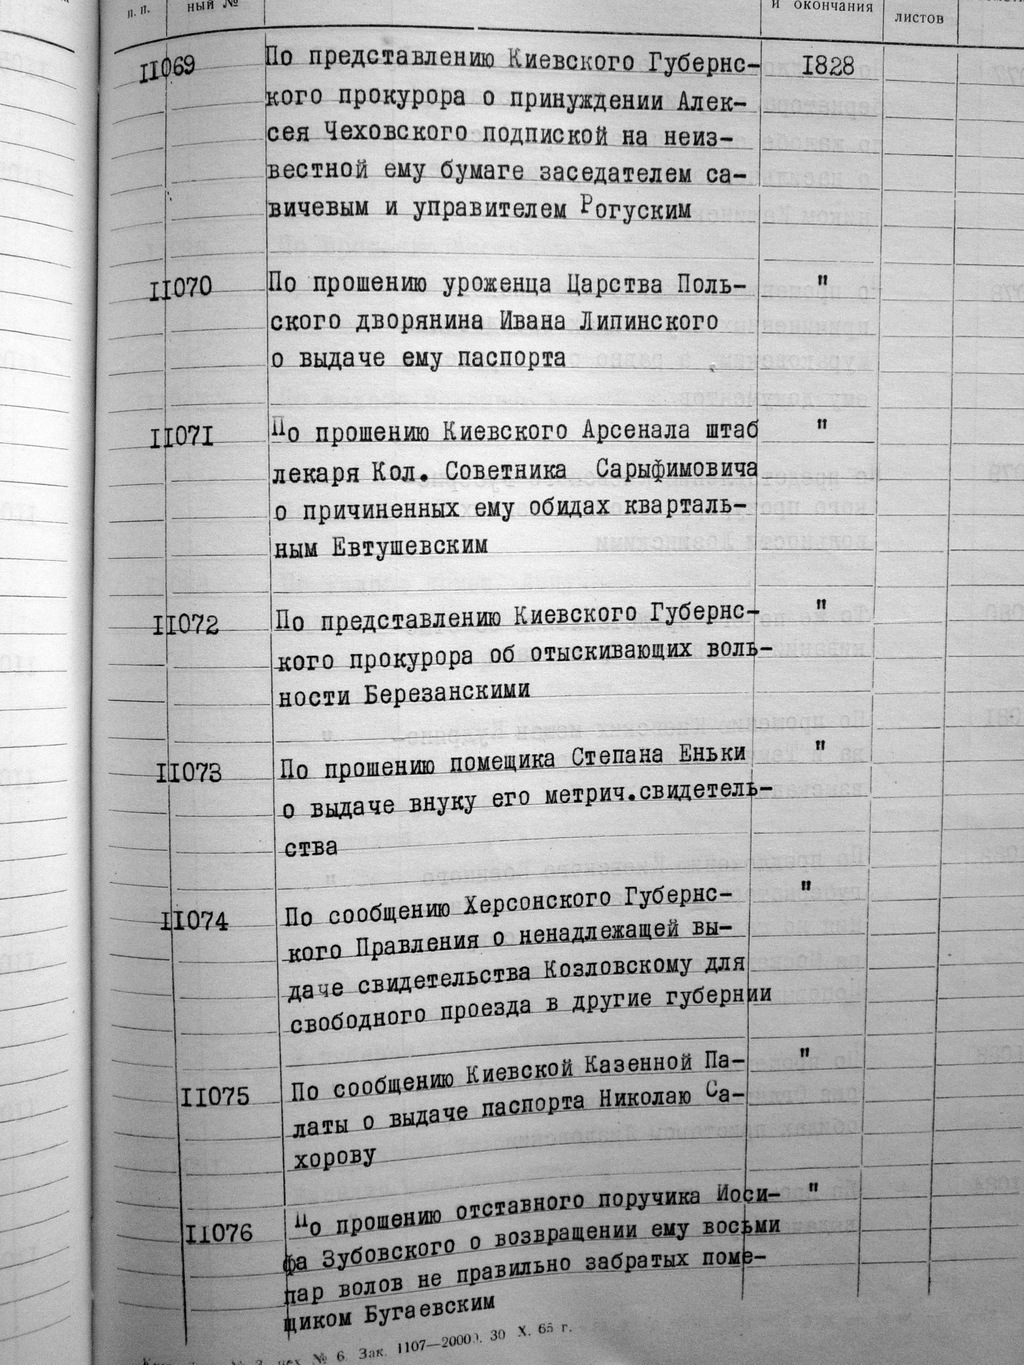 п. п. ный № и окончания листов
11069 По представлению Киевского Губернс- 1828
кого прокурора о принуждении Алек-
сея Чеховского подпиской на неиз-
вестной ему бумаге заседателем са-
вичевым и управителем Рогуским
11070 По прошению уроженца Царства Поль- "
ского дворянина Ивана Липинского
о выдаче ему паспорта
11071 По прошению Киевского Арсенала штаб "
лекаря Кол. Советника Сарыфимовича
о причиненных ему обидах кварталь-
ным Евтушевским
11072 По представлению Киевского Губернс- "
кого прокурора об отыскивающих воль-
ности Березанскими
11073 По прошению помещика Степана Еньки "
о выдаче внуку его метрич.свидетель-
ства
11074 По сообщению Херсонского Губернс- "
кого Правления о ненадлежащей вы-
даче свидетельства Козловскому для
свободного проезда в другие губернии
11075 По сообщению Киевской Казенной Па- "
латы о выдаче паспорта Николаю Са-
хорову
11076 По прошению отставного поручика Иоси- "
фа Зубовского о возвращении ему восьми
пар волов не правильно забратых поме-
щиком Бугаевским
№ 6 Зак. 1107—2000. 30 X. 65 г.